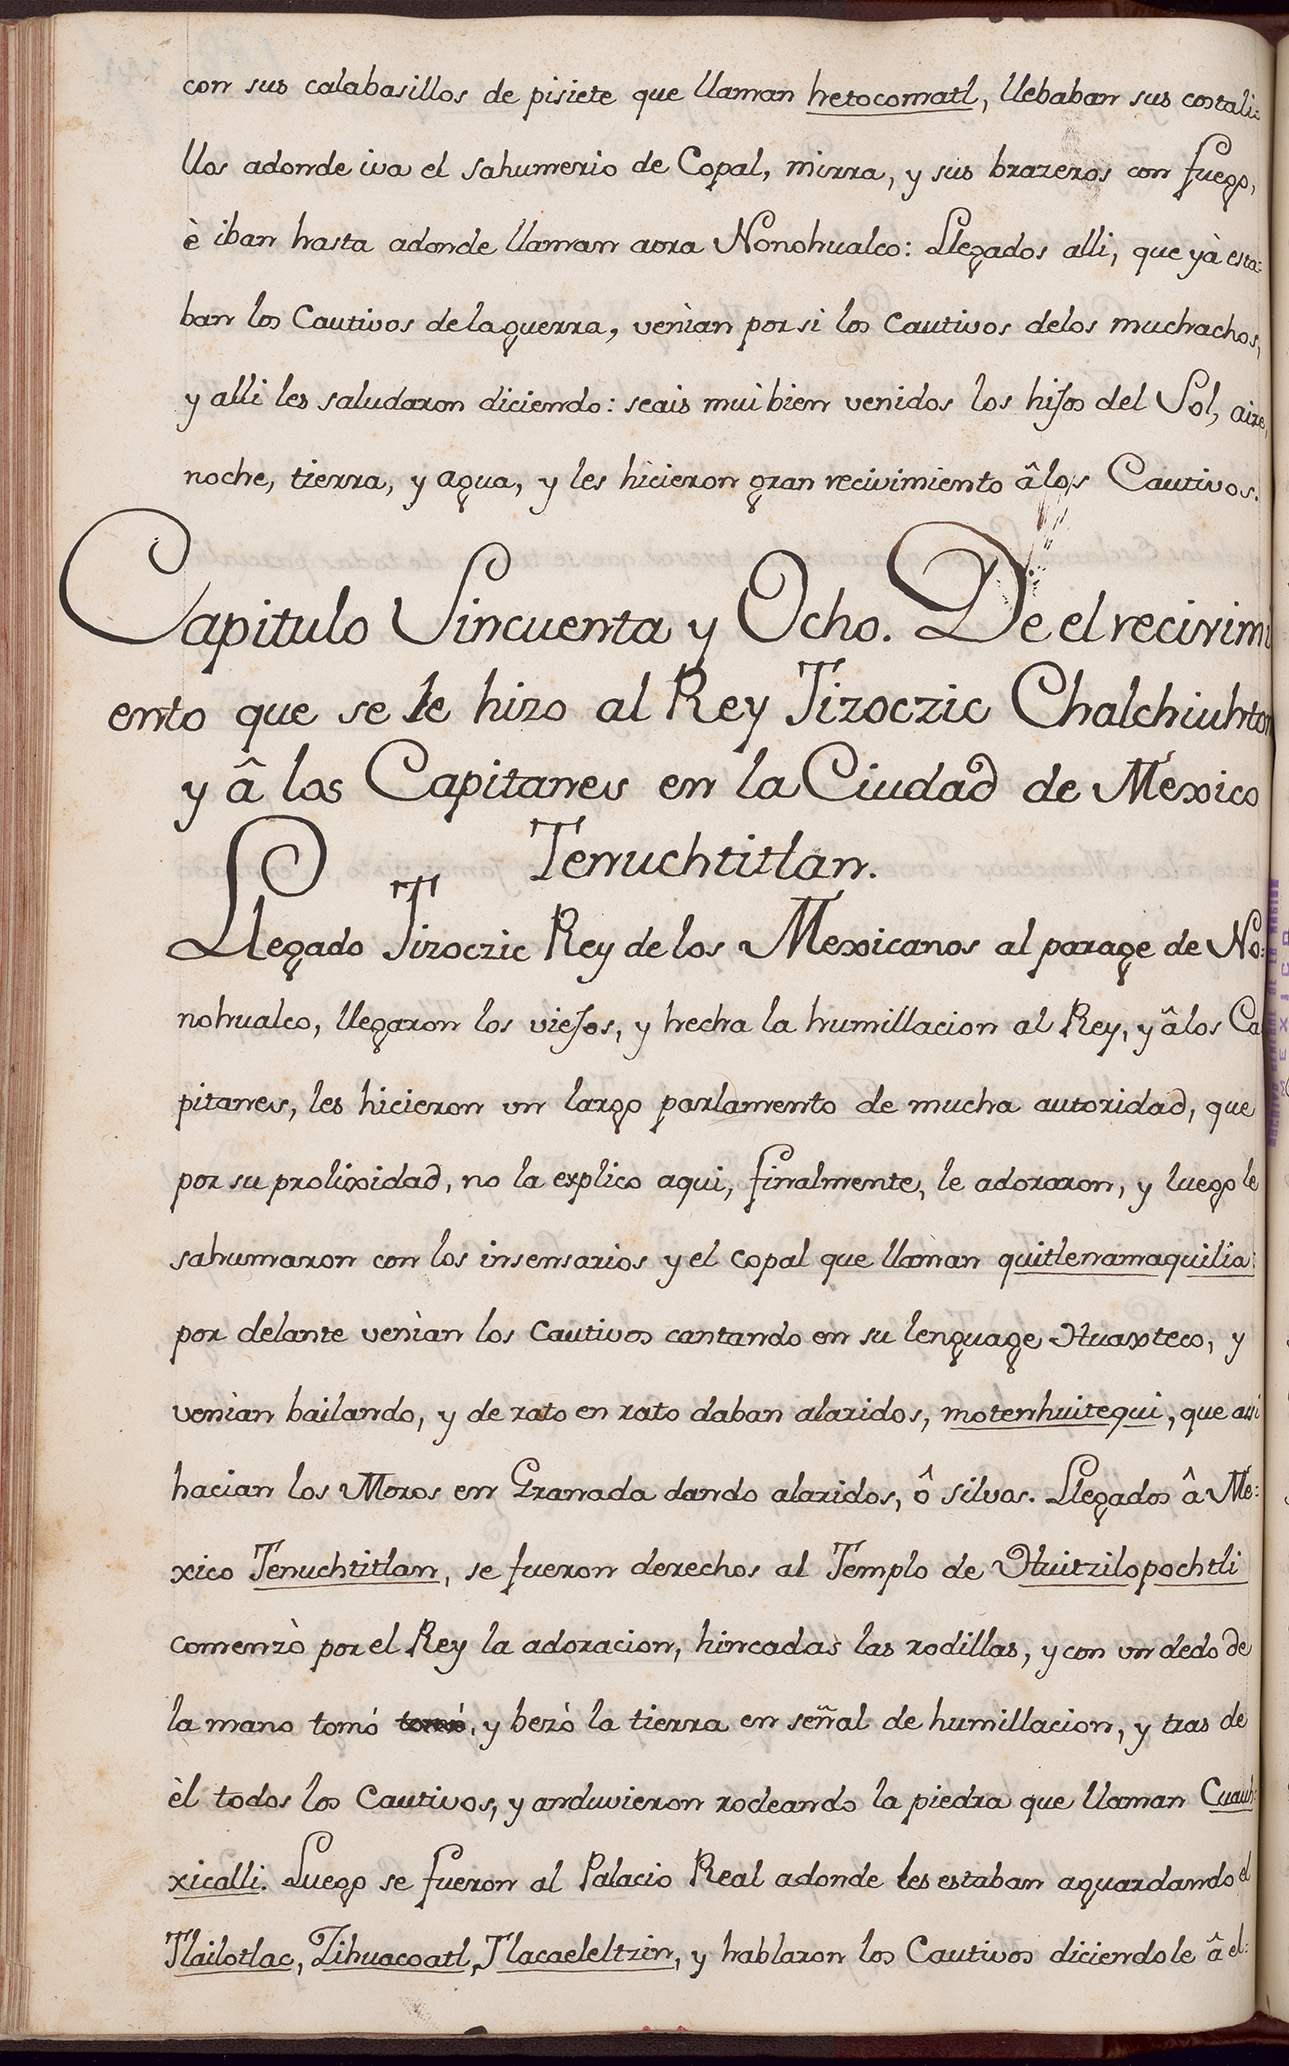 con sus calabasillos de pisiete que llaman hetocomatl, llebaban sus costali=
llos adonde iva el sahumerio de Copal, mirra, y sus brazeros con fuego,
è iban hasta adonde llaman aora Nonohualco: Llegados alli, que yà esta=
ban los Cautivos de la guerra, venìan por si los Cautivos delos muchachos,
y alli les saludaron diciendo: seais mui bien venidos los hijos del Sol, aire,
noche, tierra, y agua, y les hicieron gran recivimiento âlos Cautivos.
Capitulo Sincuenta y Ocho. De el recivimi
ento que se le hizo al Rey Tizoczic Chalchiuhton
y â los Capitanes en la Ciudad de Mexico
Tenuchtitlan.
Llegado Tizoczic Rey de los Mexicanos al parage de No=
nohualco, llegaron los viejos, y hecha la humillacion al Rey, y âlos Ca
pitanes, les hicieron un largo parlamento de mucha autoridad, que
por su prolixidad, no la explico aqui, finalmente, le adoraron, y luego le
sahumaron con los insensarios y el copal que llaman quitlenamaquilia:
por delante venìan los Cautivos cantando en su lenguage Huaxteco, y
venìan bailando, y de rato en rato daban alaridos, motenhuitequi, que assi
hacian los Moros en Granada dando alaridos, ô silvos. Llegados â Me=
xico Tenuchtitlan, se fueron derechos al Templo de Huitzilopochtli
comenzò por el Rey la adoracion, hincadas las rodillas, y con un dedo de
la mano tomó, y bezò la tierra en señal de humillacion, y tras de
èl todos los Cautivos, y anduvieron rodeando la piedra que llaman Cuauh=
xicalli. Luego se fueron al Palacio Real adonde les estaban aguardando el
Tlailotlac, Zihuacoatl, Tlacaeleltzin, y hablaron los Cautivos diciendole â el=